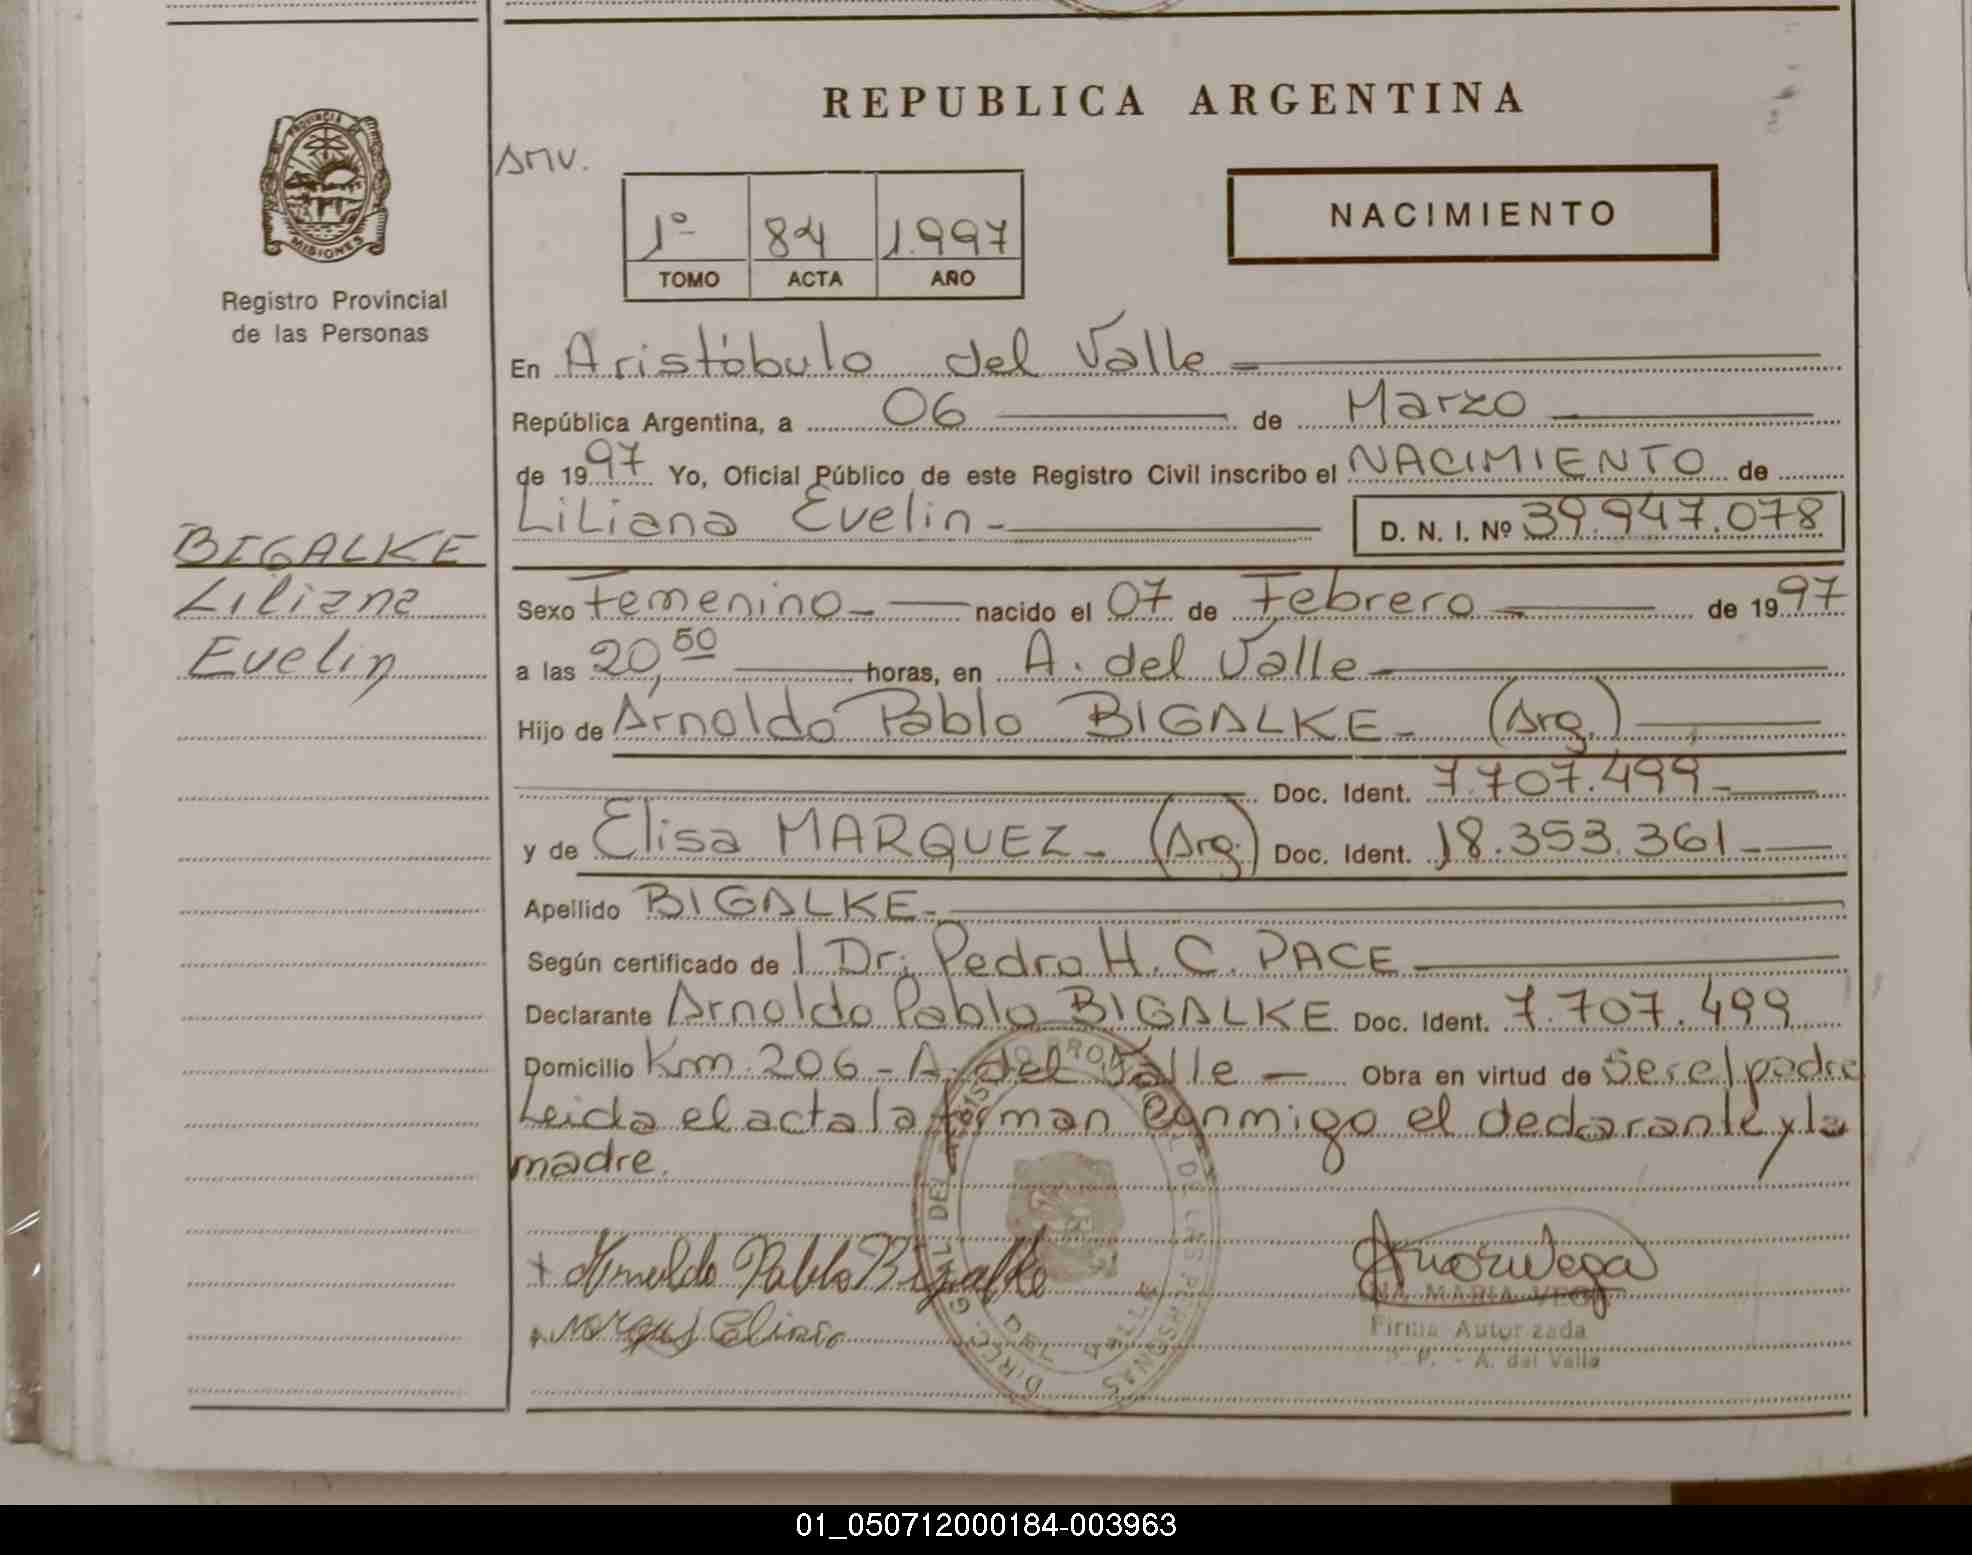 REPUBLICA ARGENTINA
PROVINCIA DE
MISIONES
Registro Provincial
de las Personas
AMV.
1º 84 1.997
TOMO ACTA AÑO
NACIMIENTO
En Aristóbulo del Valle
República Argentina, a 06 de Marzo
de 1997 Yo, Oficial Público de este Registro Civil inscribo el NACIMIENTO de
Liliana Evelin D. N. I. Nº 39.947.078
BIGALKE
Liliana
Evelin
Sexo Femenino nacido el 07 de Febrero de 1997
a las 20,50 horas, en A. del Valle
Hijo de Arnoldo Pablo BIGALKE (Arg.)
Doc. Ident. 7.707.499
y de Elisa MARQUEZ (Arg.) Doc. Ident. 18.353.361
Apellido BIGALKE
Según certificado de l Dr; Pedro H. C. PACE
Declarante Arnoldo Pablo BIGALKE Doc. Ident. 7.707.499
Domicilio Km. 206 - A. del Valle Obra en virtud de ser el padre
Leida el acta la firman conmigo el declarante y la
madre.
Arnoldo Pablo Bigalke
ANA MARIA VEGA
Firma Autorizada
A. del Valle
DEL VALLE
01_050712000184-003963